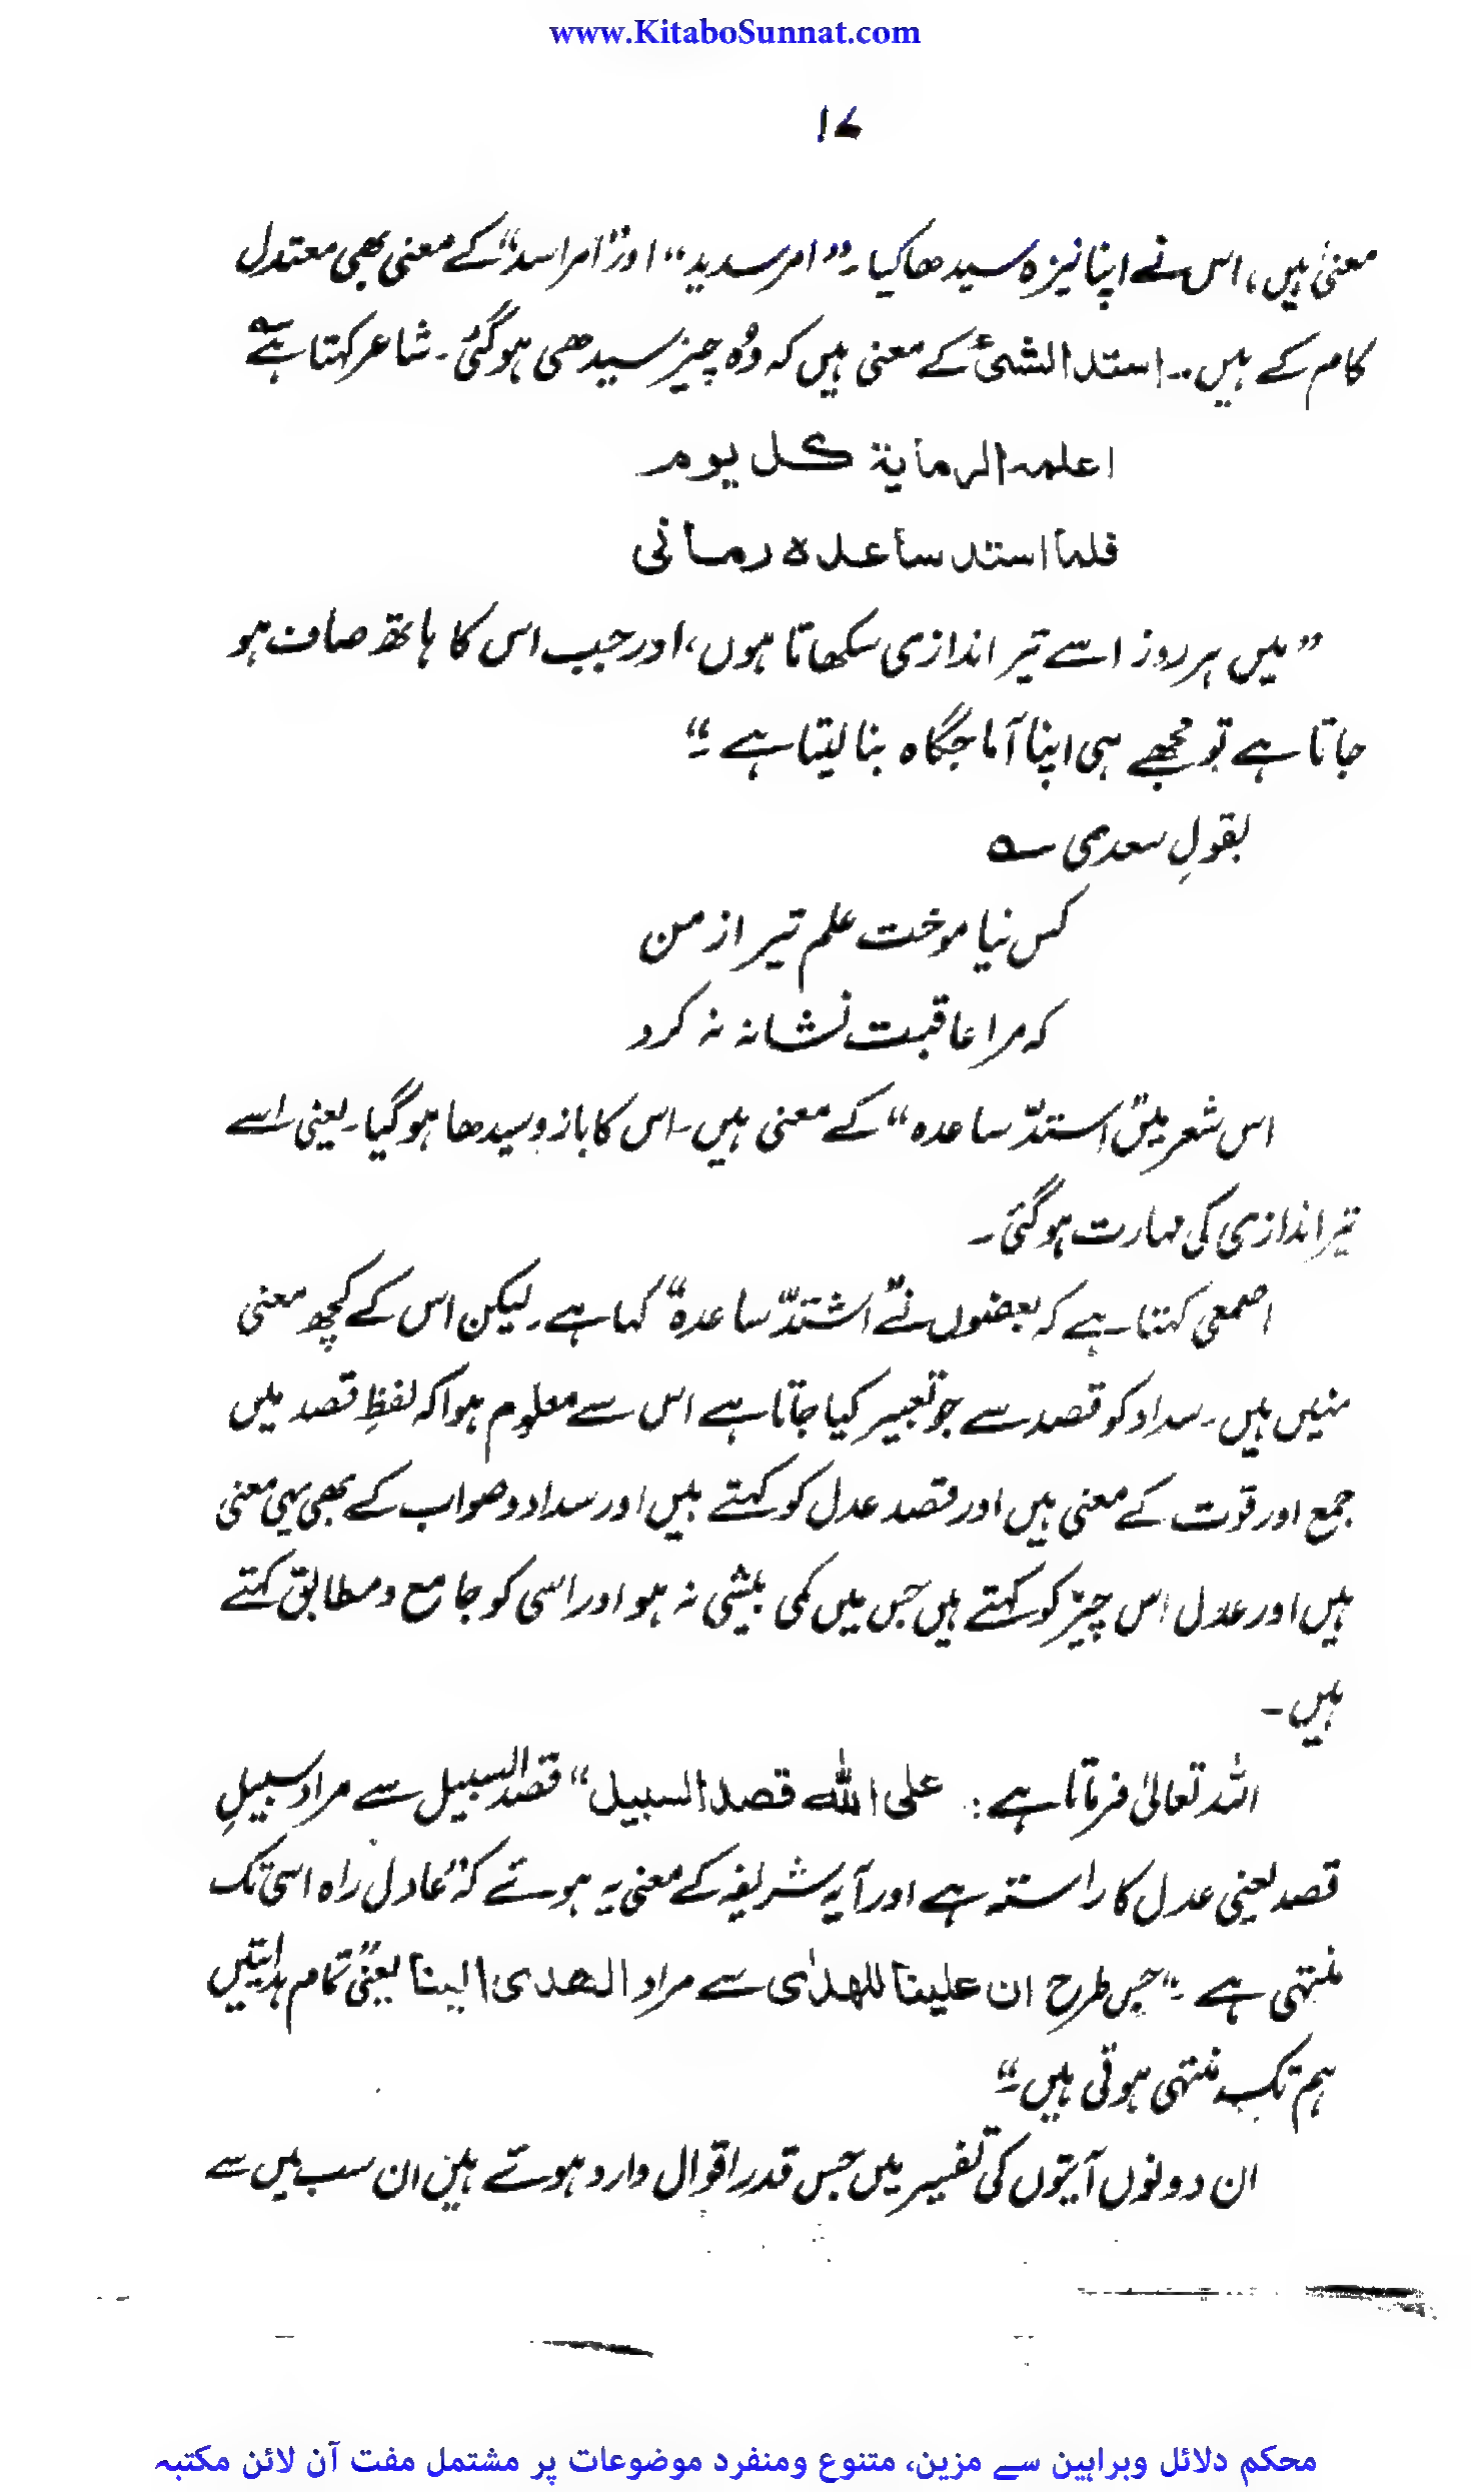 www.KitaboSunnat.com
۱۷
معنیٰ ہیں، اس نے اپنا نیزہ سیدھا کیا۔ ”امر سدید“ اور ”امر اسد“ کے معنی بھی معتدل
کام کے ہیں۔ استد الشیئ کے معنی ہیں کہ وُہ چیز سیدھی ہوگئی۔ شاعر کہتا ہے ؎
اعلمہ الرمایة کل یوم
فلما استد ساعدہ رمانی
”میں ہر روز اسے تیر اندازی سکھاتا ہوں، اور جب اس کا ہاتھ صاف ہو
جاتا ہے تو مجھے ہی اپنا آماجگاہ بنا لیتا ہے۔“
بقولِ سعدی ؎
کس نیاموخت علم تیر از من
کہ مرا عاقبت نشانہ نہ کرد
اس شعر میں ”استدّ ساعدہ“ کے معنی ہیں۔ اس کا بازو سیدھا ہوگیا۔ یعنی اسے
تیر اندازی کی مہارت ہوگئی۔
اصمعی کہتا ہے کہ بعضوں نے ”اشتدّ ساعدہ“ کہا ہے۔ لیکن اس کے کچھ معنی
نہیں ہیں۔ سداد کو قصد سے جو تعبیر کیا جاتا ہے اس سے معلوم ہوا کہ لفظِ قصد میں
جمع اور قوت کے معنی ہیں اور قصد عدل کو کہتے ہیں اور سداد و صواب کے بھی یہی معنی
ہیں اور عدل اس چیز کو کہتے ہیں جس میں کمی بیشی نہ ہو اور اسی کو جامع و مطابق کہتے
ہیں۔
اللہ تعالیٰ فرماتا ہے: علی اللہ قصد السبیل“ قصد السبیل سے مراد سبیلِ
قصد یعنی عدل کا راستہ ہے اور آیہ شریفہ کے معنی یہ ہوئے کہ ”عادل راہ اسی تک
منتہی ہے۔“ جس طرح ان علینا للھدٰی سے مراد الھدی الینا یعنی ”تمام ہدایتیں
ہم تک منتہی ہوتی ہیں۔“
ان دونوں آیتوں کی تفسیر میں جس قدر اقوال وارد ہوتے ہیں ان سب میں سے
محکم دلائل وبراہین سے مزین، متنوع ومنفرد موضوعات پر مشتمل مفت آن لائن مکتبہ